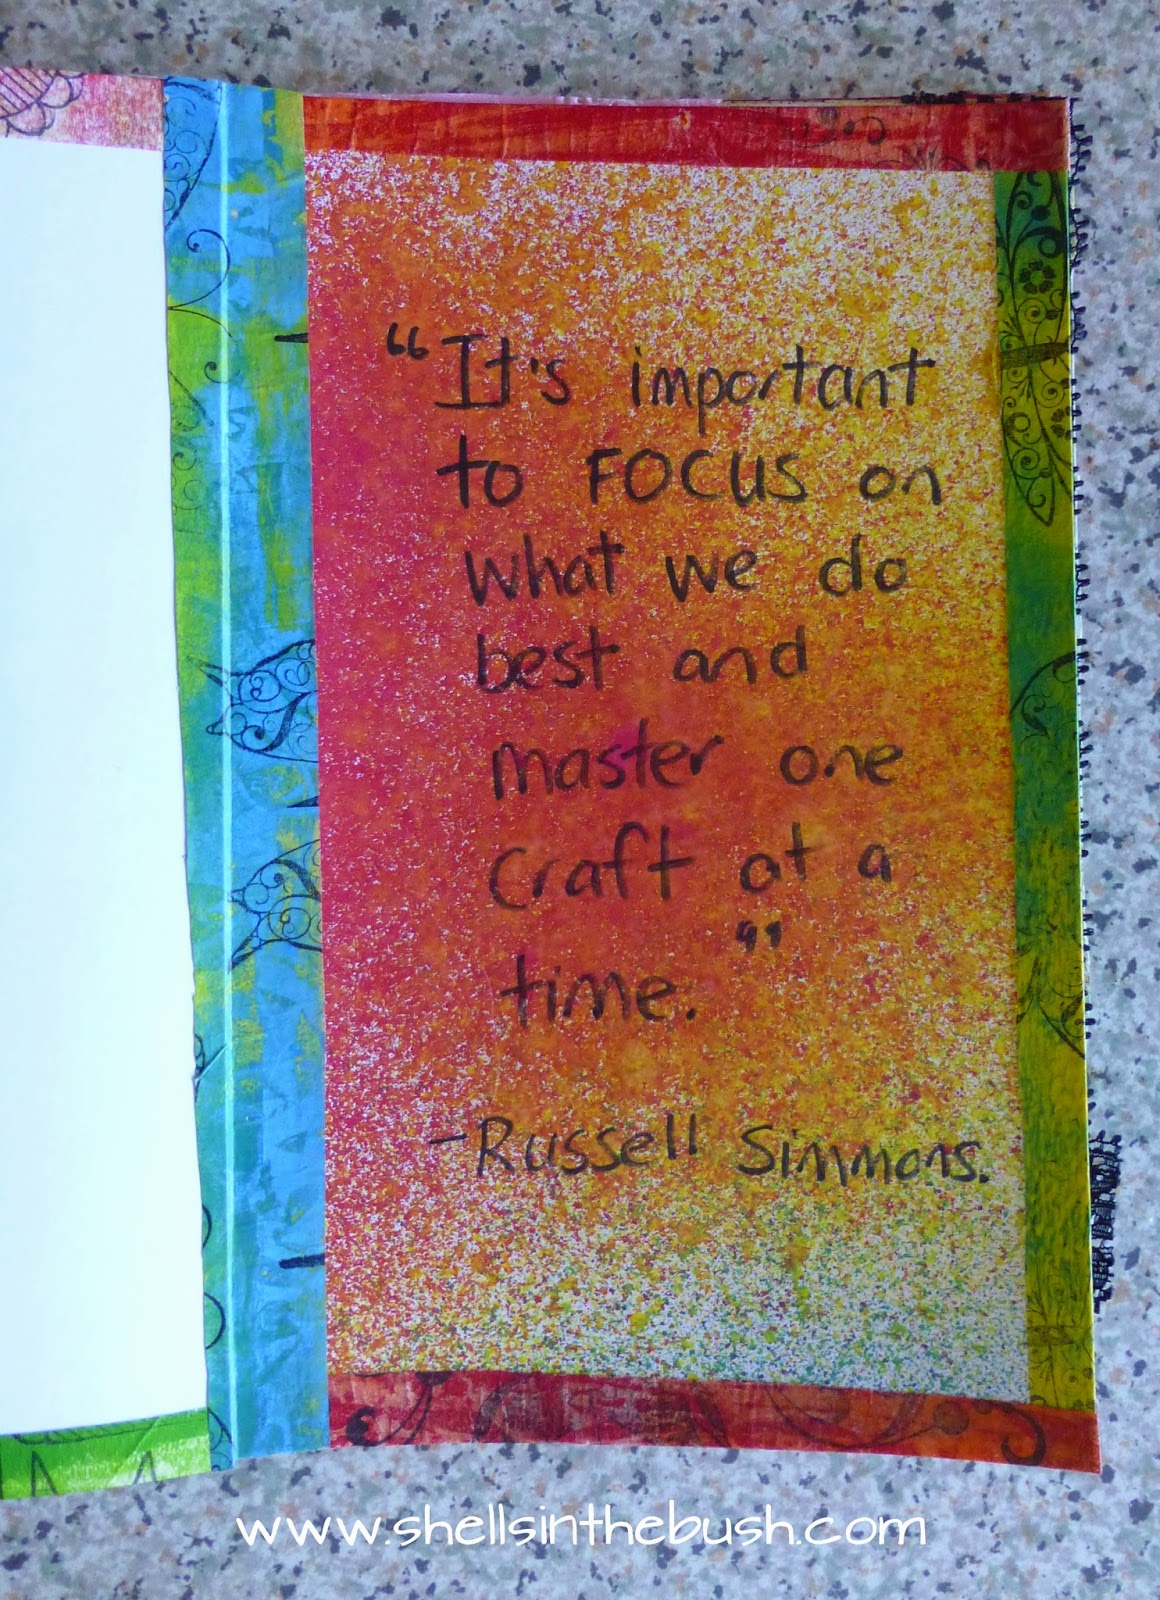 “It's important
to FOCUS on
what we do
best and
master one
craft at a
time.”
-Russell Simmons.
www.shellsinthebush.com